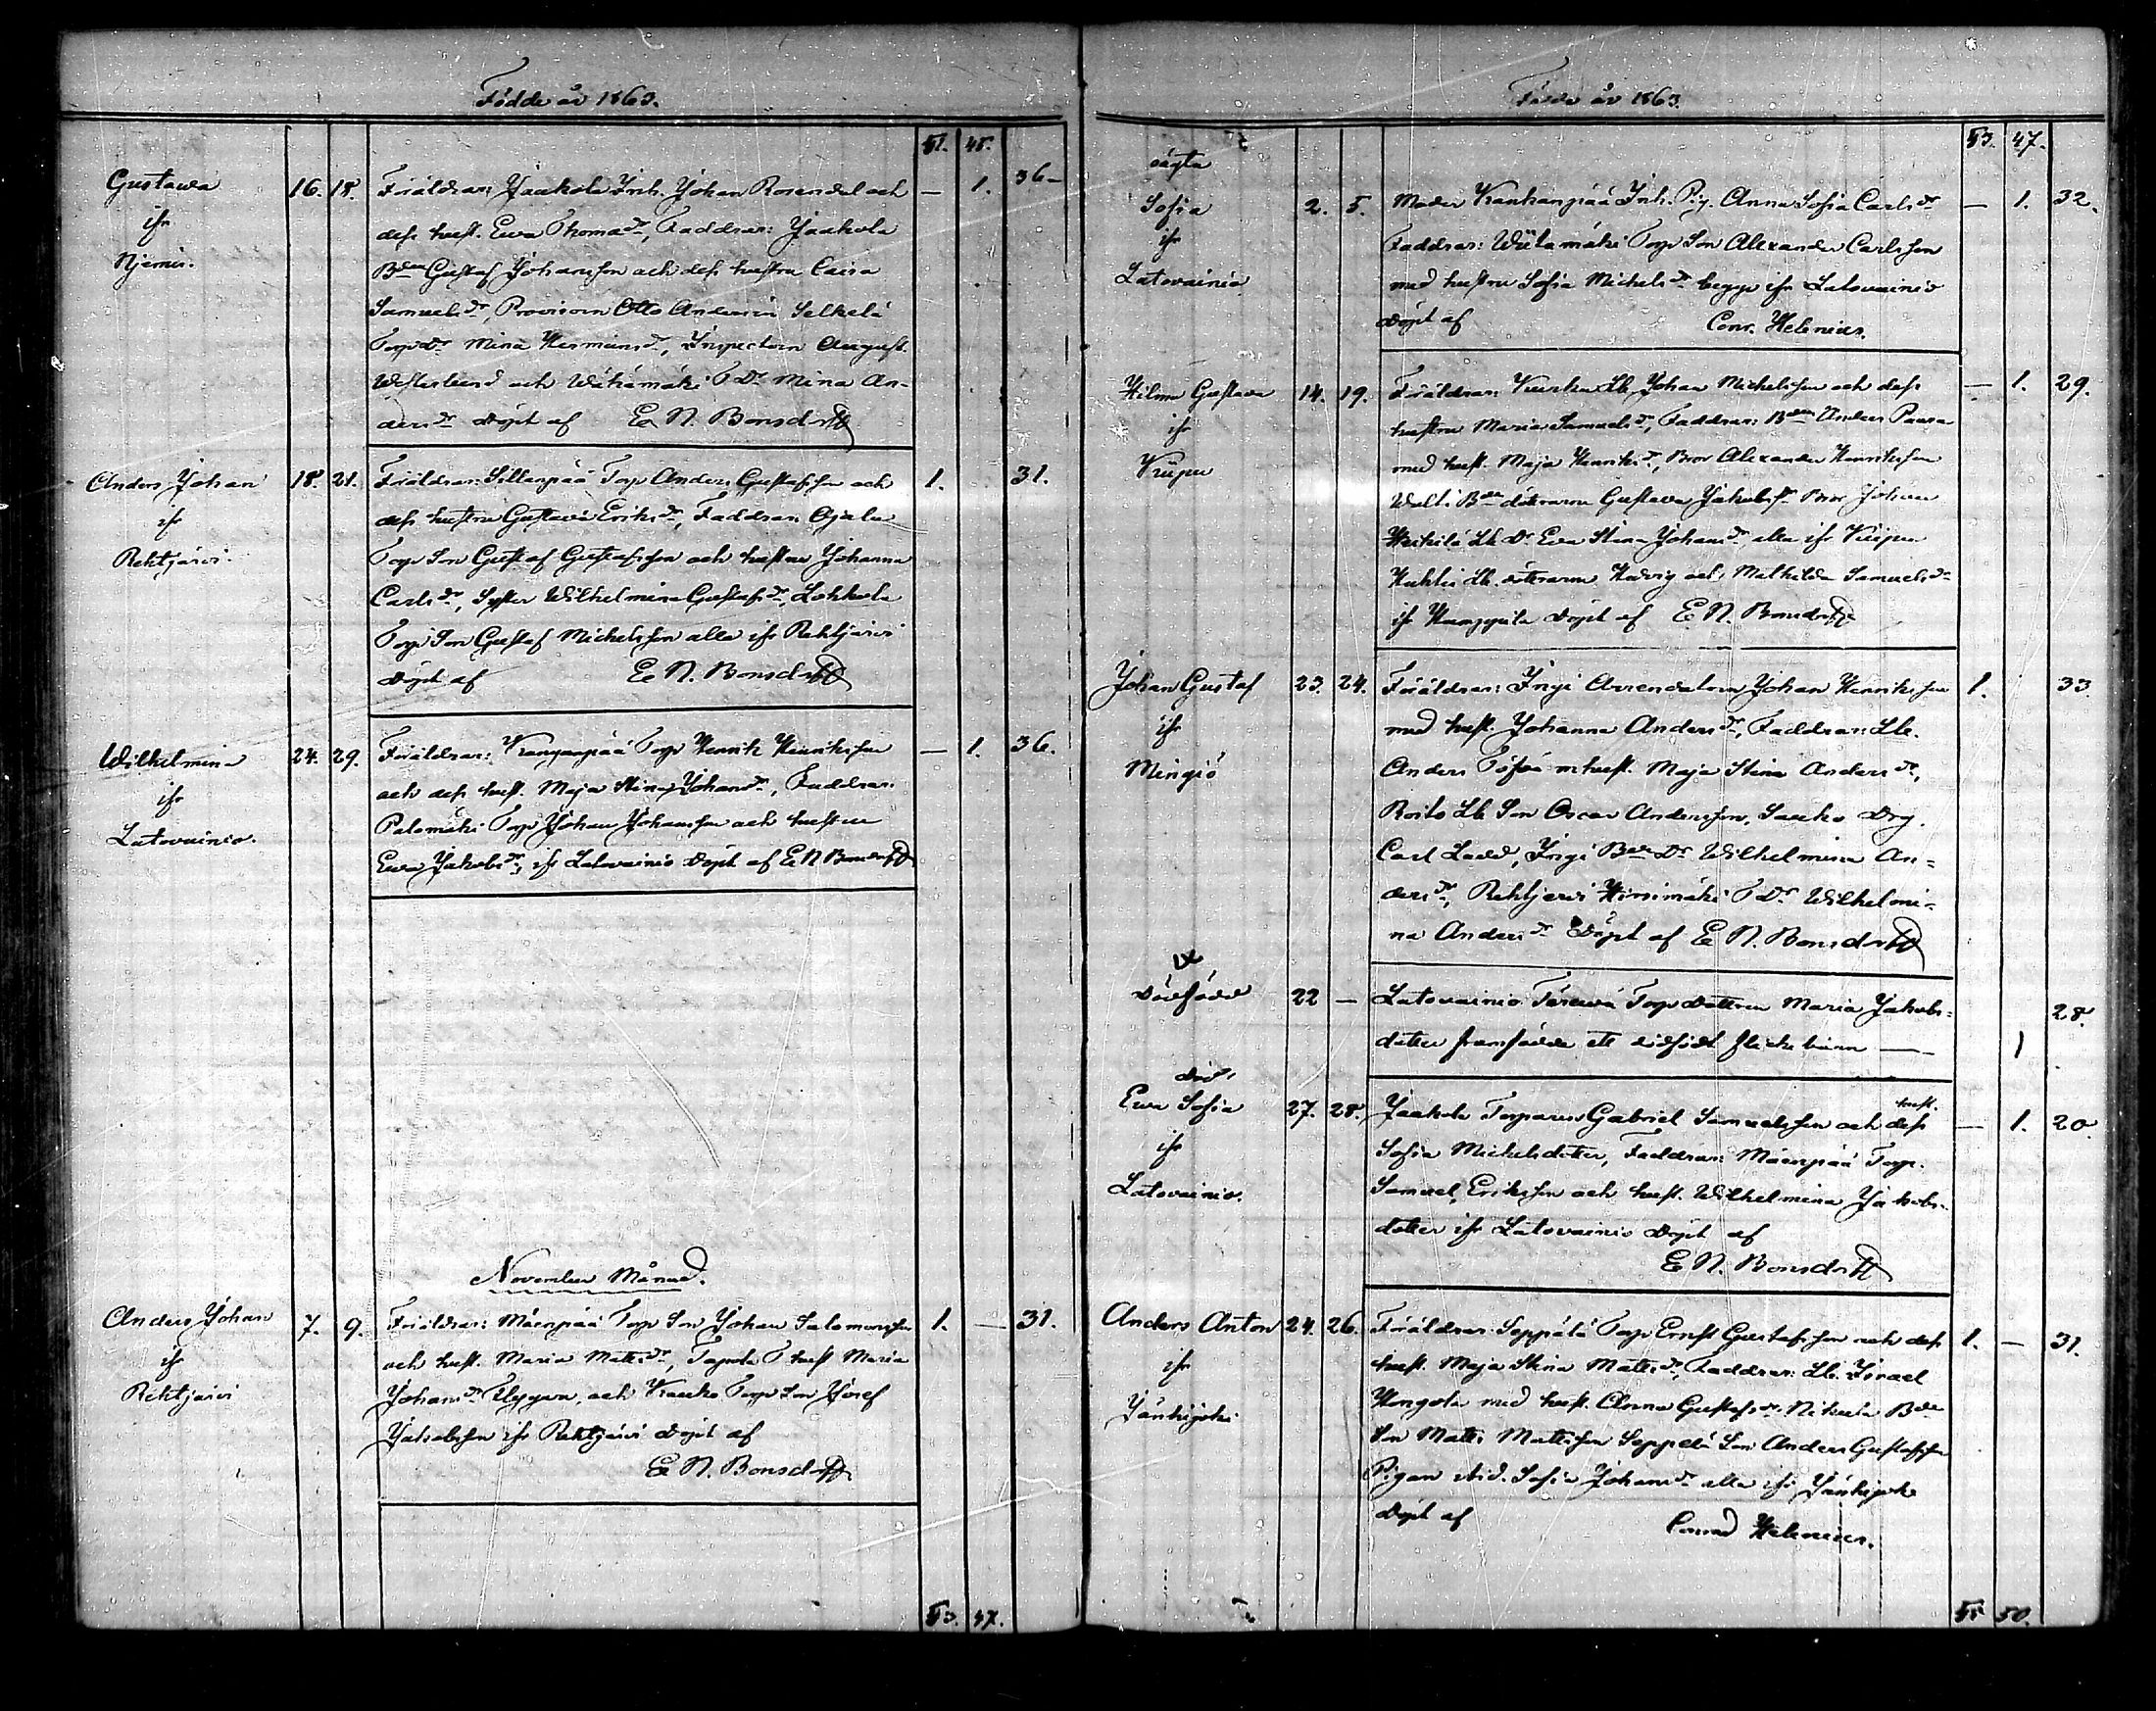 Födde år 1863.
51. 45.
Gustawa 16. 18. Föräldrar: Jaakola Inh. Johan Rosendal och — 1. 36 —
ifr dess hust. Ewa Thomadr, Faddrar: Jaakola
Njemis. Bden Gustaf Johansson och dess hustru Caisa
Samuelsdr, Provisorn Otto Selkelä
Torpdr Mina Hermansdr, Inspectorn August
Westerlund och Wähämäki T Dr Mina An-
dersdr döpt af E N. Bonsdorff
Anders Johan 18. 21. Föräldrar: Sillanpää Torp Anders Gustafsson och 1. 31.
ifr dess hustru Gustava Eriksdr, Faddrar: Ojala
Rehtjärvi. Torp Son Gustaf Gustafsson och hustru Johanna
Carlsdr, Syster Wilhelmina Gustafsdr, Lohkola
Torp Son Gustaf Michelsson alla ifr Rehtjärvi
döpt af E N. Bonsdorff
Wilhelmina 24. 29. Föräldrar: Kanganpää Torp Henrik Henriksson — 1. 36.
ifr och dess hust. Maja Stina Johansdr, Faddrar:
Latovainio. Palomäki Torp Johan Johansson och hustru
Ewa Jakobsdr, ifr Latovainio döpt af E N Bonsdorff
November Månad.
Anders Johan 7. 9. Föräldrar: Mäenpää Torp Son Johan Salomonsson 1. — 31.
ifr och hust. Maria Mattsdr, Tapola T hust Maria
Rehtjärvi Johansdr Flygare, och Kraako Torp Son Josef
Jakobsson ifr Rehtjärvi döpt af
E N. Bonsdorff
53. 47.
Födde år 1863.
53. 47.
oägta
Sofia 2. 5. Moder Kanhanpää Inh. Pig. Anna Sofia Carlsdr — 1. 32.
ifr Faddrar: Wiitamäki Torp Son Alexander Carlsson
Latovainio med hustru Sofia Michelsdr begge ifr Latovainio
döpt af Conr. Helenius.
Hilma Gustava 14. 19. Föräldrar: Lb Johan Michelsson och dess — 1. 29.
ifr hustru Maria Samuelsdr, Faddrar: Bden Anders Paara
Kiipu med hust. Maja Henriksdr, Bror Alexander Henriksson
Bde döttrarne Gustava Jakobsdr Bror Johan
Heikilä Lb Dr Eva Stina Johansdr, alla ifr Kiipu
Lb. döttrarne Hedvig och Mathilda Samuelsdr
ifr Humppila döpt af E. N. Bonsdorff
Johan Gustaf 23. 24. Föräldrar: Frigi Arrendatorn Johan Henriksson 1. 33.
ifr med hust. Johanna Andersdr, Faddrar: Lb.
Mingiö Anders m hust. Maja Stina Andersdr,
Lb Son Oscar Andersson, Saako Drg.
Carl Ladd, Frigi Bde Dr Wilhelmina An-
dersdr, Rehtjervi Hirsimäki T Dr Wilhelmi-
na Andersdr Döpt af E N. Bonsdorff
Dödfödd 22 — Latovainio Torp dottern Maria Jakobs- 28.
dotter framfödde ett dödfödt flickebarn — 1
död
Ewa Sofia 27. 28. Jaakola Torparen Gabriel Samuelsson och dess hust. — 1. 20.
ifr Sofia Michelsdotter, Faddrar: Mäenpää Torp.
Latovainio. Samuel Eriksson och hust. Wilhelmina Jakobs-
dotter ifr Latovainio Döpt af
E N. Bonsdorff
Anders Anton 24. 26. Föräldrar: Seppälä Torp Ernst Gustafsson och dess 1. — 31.
ifr hust. Maja Stina Mattsdr, Faddrar: Lb. Israel
Jänhijoki Hongola med hust. Anna Gustafsdr. Nikula Bde
Son Matts Mattsson Seppälä Son Anders Gustafsson
Pigan ibid. Sofia Johansdr alla ifr Jänhijoki
Döpt af Conrad Helenius.
55 50.